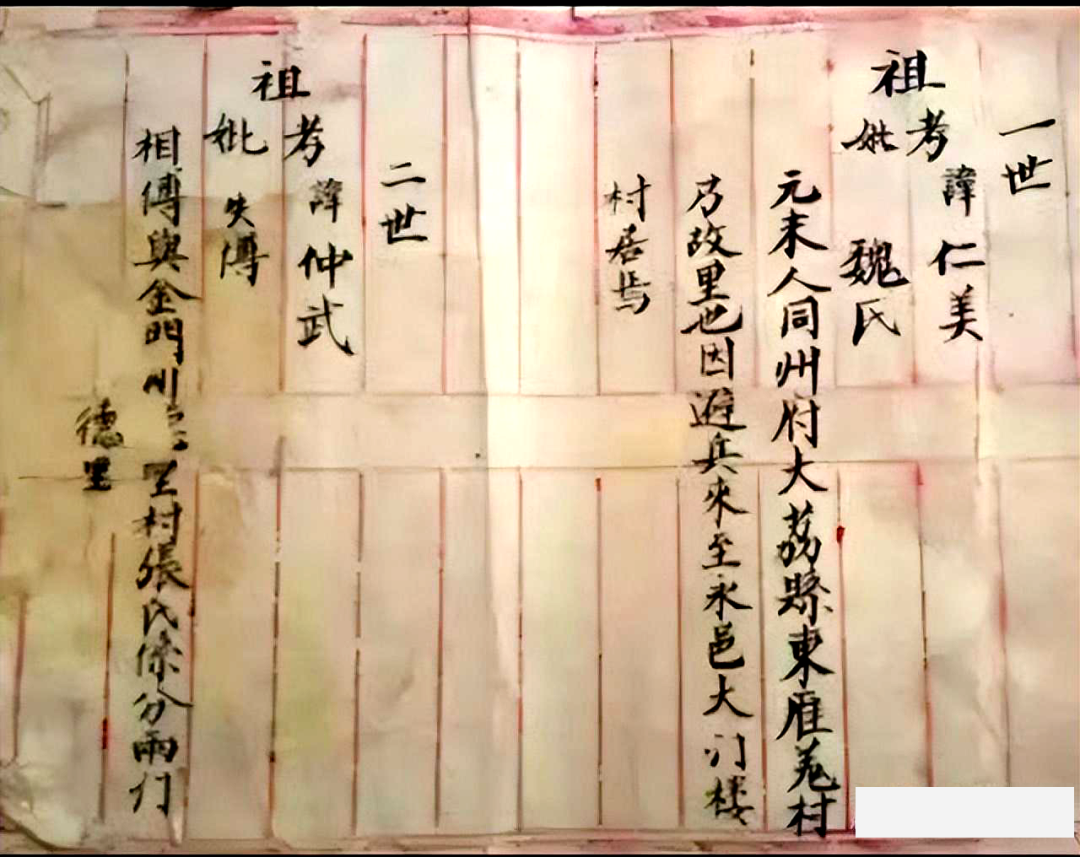 一世
祖考諱仁美
妣魏氏
元末人同州府大荔縣東雁村
乃故里也因避兵來至永邑大门楼
村居焉
二世
祖考諱仲武
妣失傳
相傳與金門川里村張氏係分兩门
德里